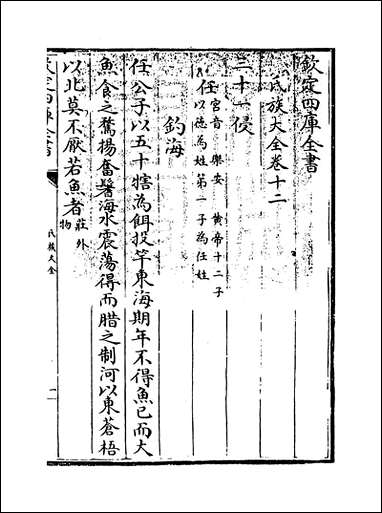 欽定四庫全書
氏族大全卷十二
二十一侵
任 宮音 樂安 黄帝十二子
以德為姓第一子為任姓
釣海
任公子以五十犗為餌投竿東海期年不得魚已而大
魚食之驚揚奮鬐海水震蕩得而腊之制河以東蒼梧
以北莫不厭若魚者 莊外
物
四庫全書
氏族大全